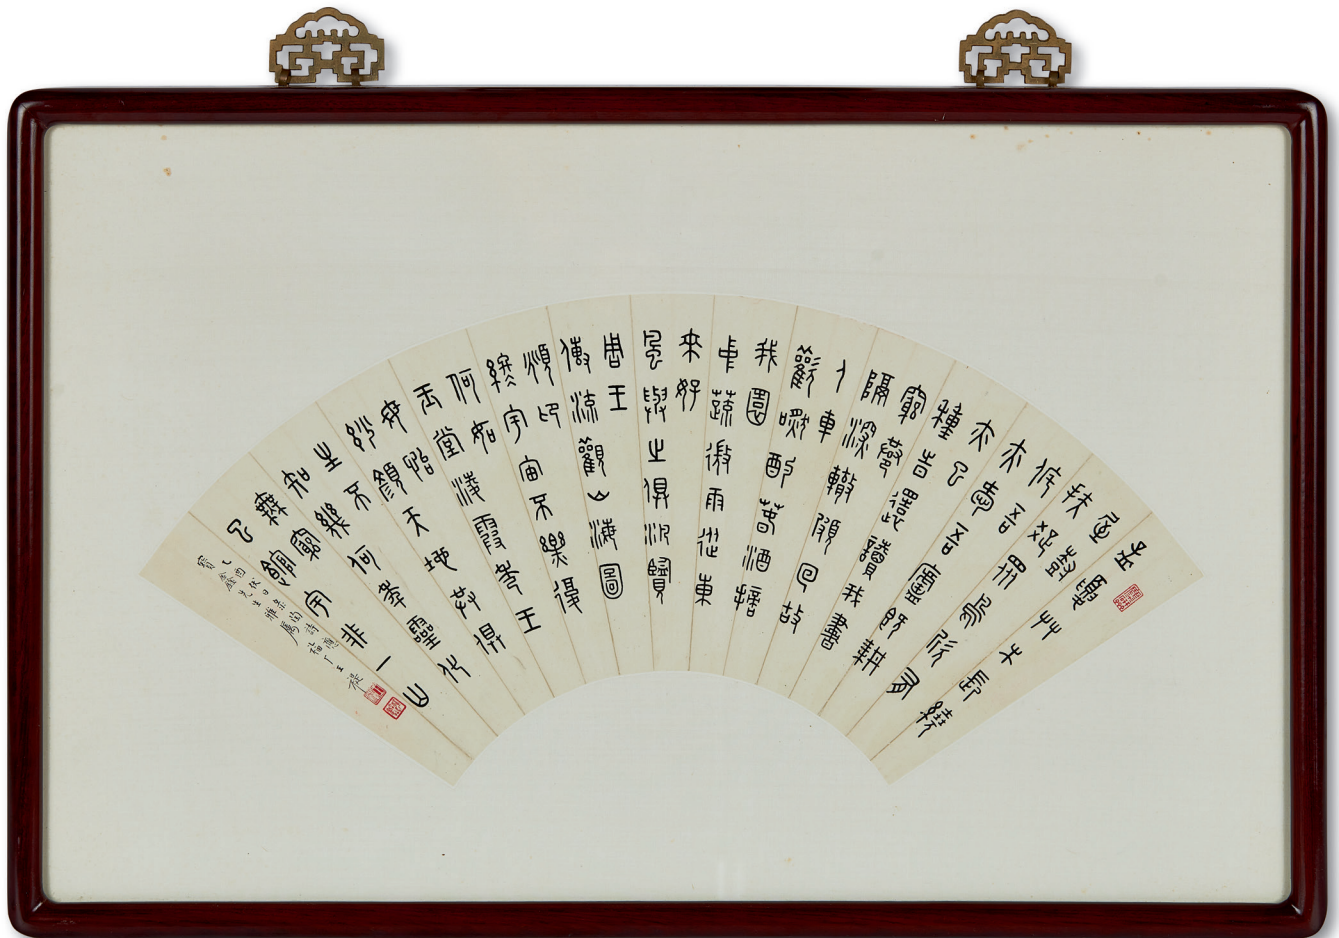 孟夏草木長繞
屋樹
扶疏眾鳥欣有
托吾
亦愛吾廬既耕
亦已
種時還讀我書
窮巷
隔深轍頗回故
人車
歡言酌春酒摘
我園
中蔬微雨從東
來好
風與之俱汎覽
周王
傳流觀山海圖
俯仰
終宇宙不樂復
何如
玉堂凌霞秀王
母怡
妙顏天地共俱
生不
知幾何年靈化
無窮
已館宇非一山
乙酉伏日彔陶詩應
寶盦先生雅屬福厂王禔